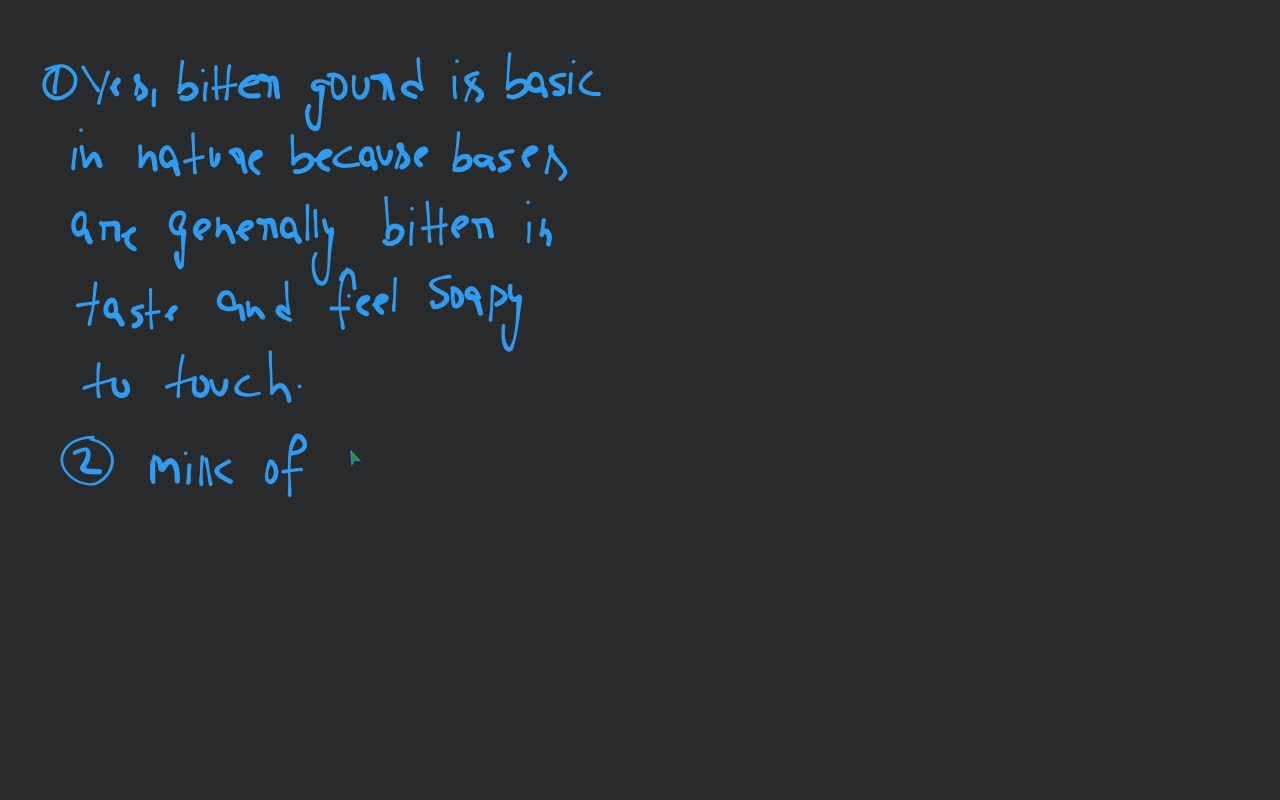 ① Yes, bitter gourd is basic
in nature because bases
are generally bitter in
taste and feel soapy
to touch.
② Milk of